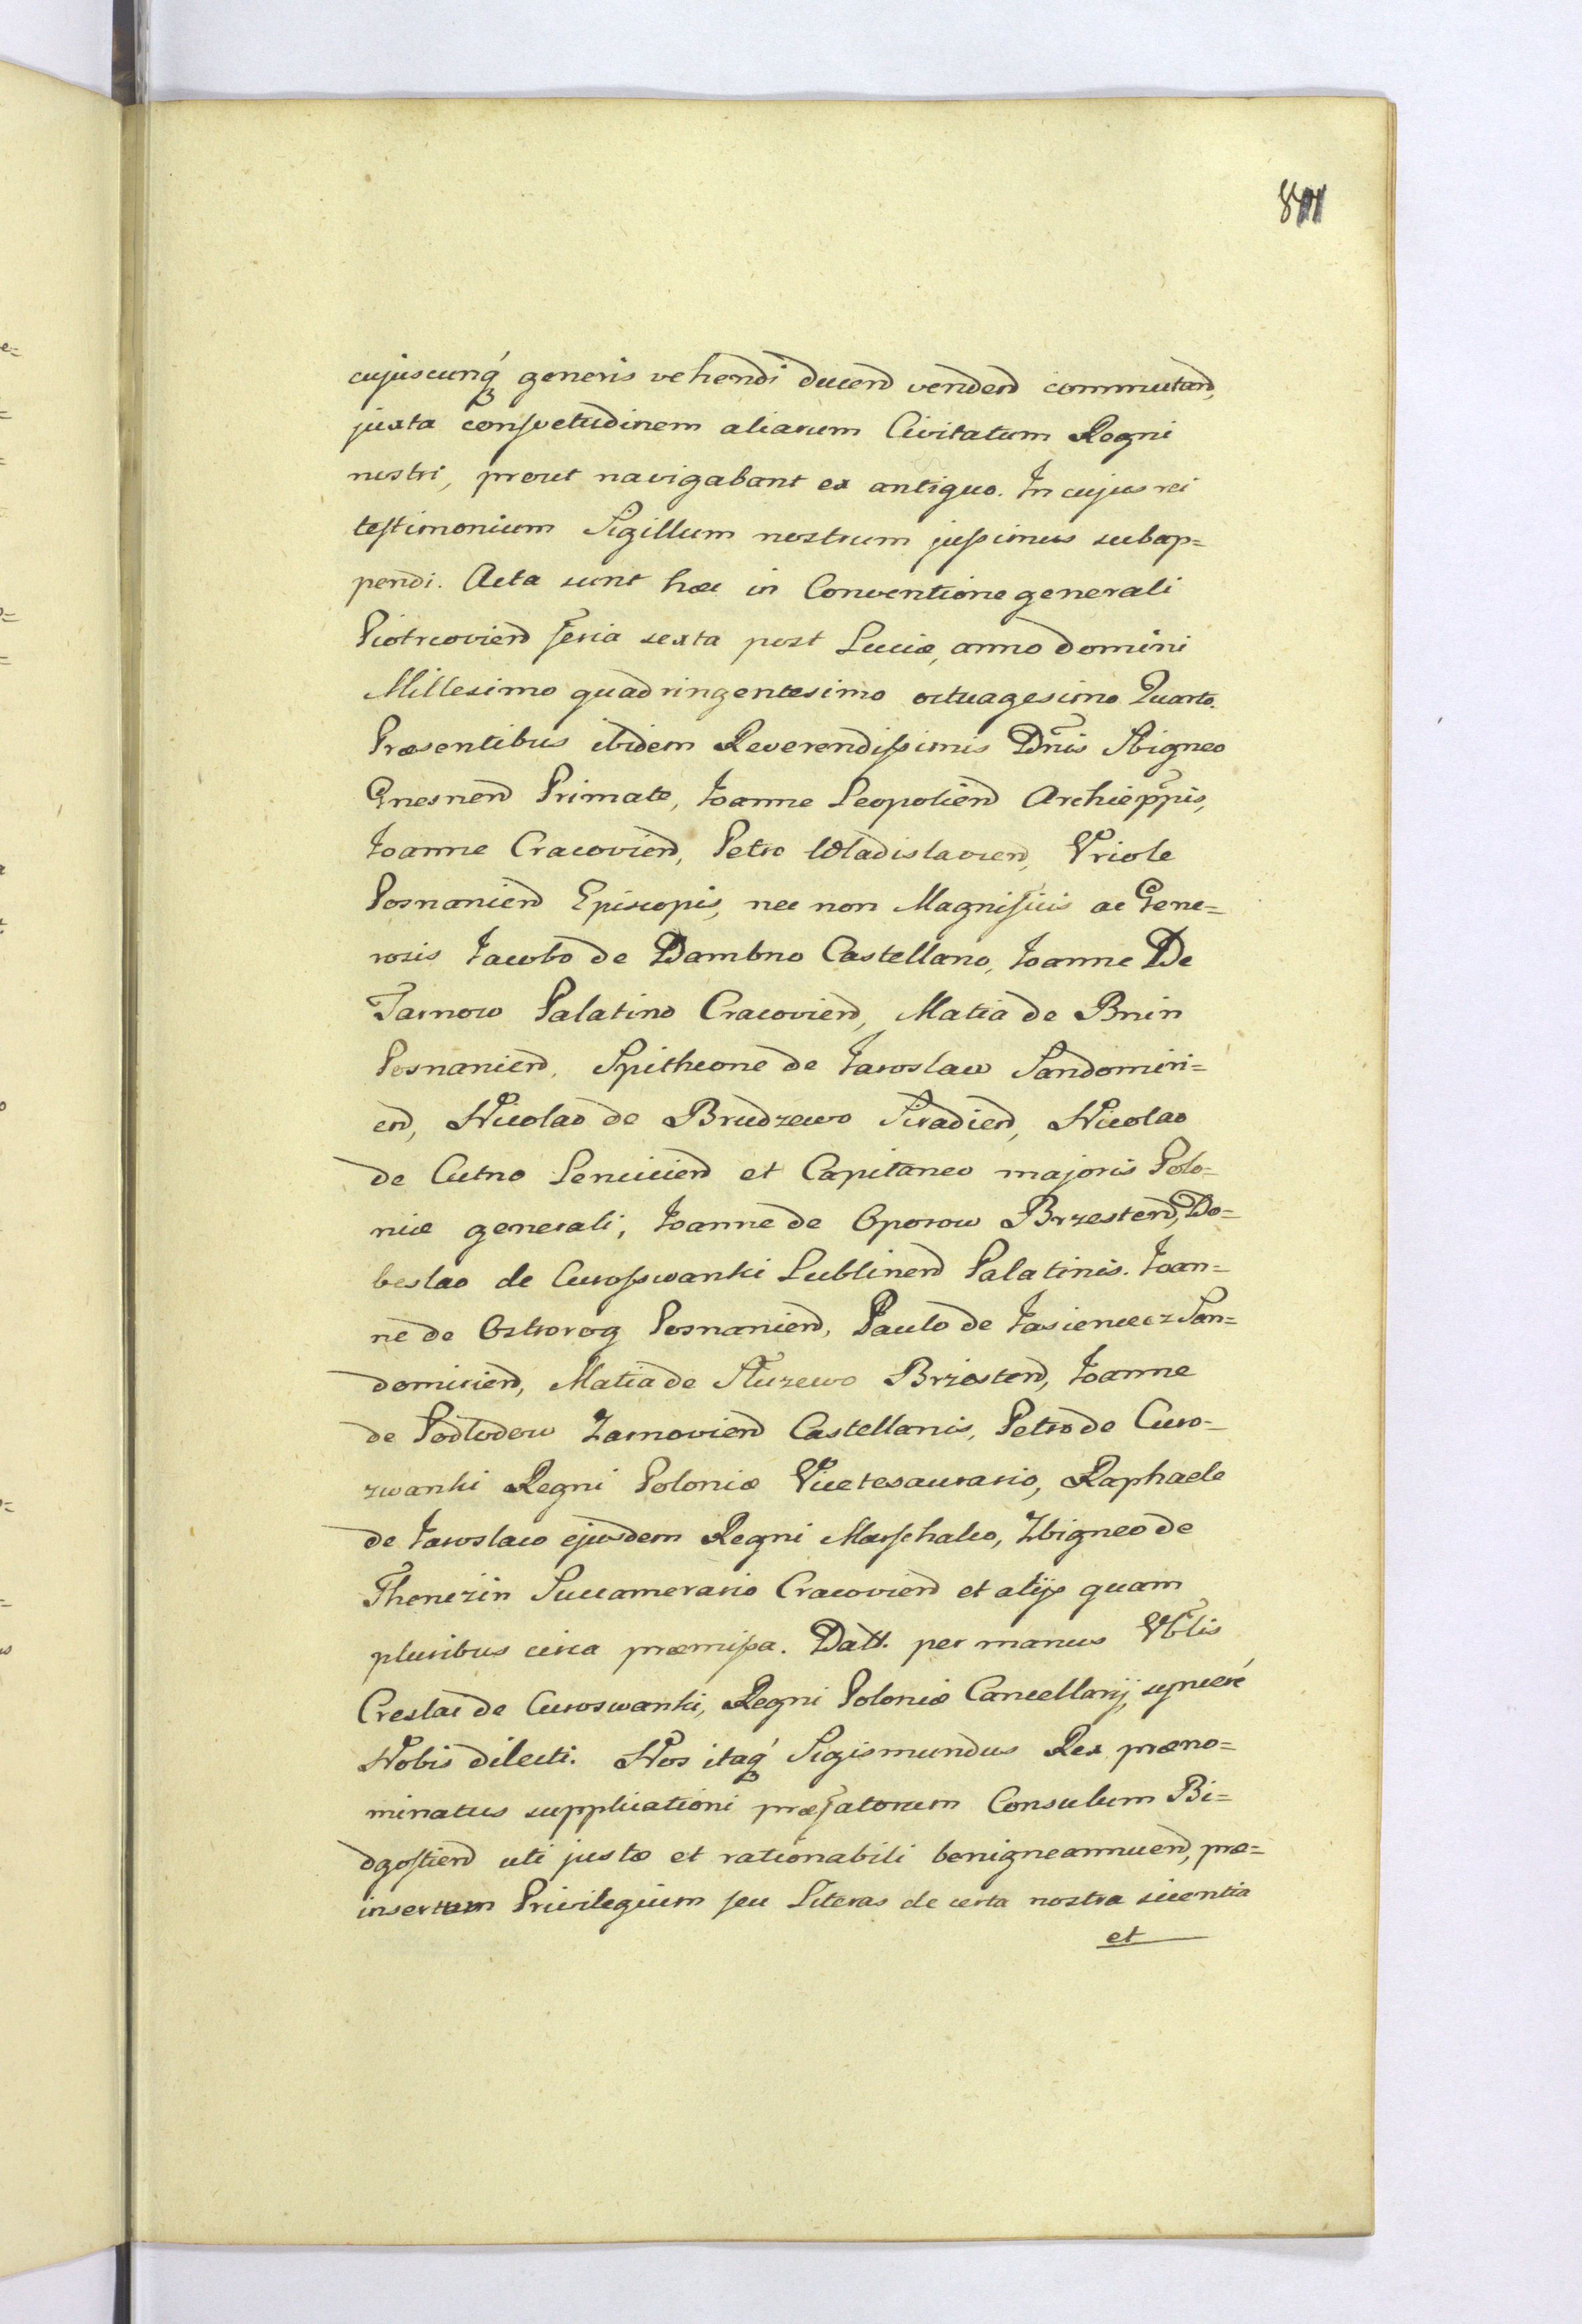 cujuscunq́ generis vehendi ducend vendend commutand,
juxta consvetudinem aliarum Civitatum Regni
nostri, prout navigabant ex antiquo. In cujus rei
testimonium Sigillum nostrum jussimus subap=
pendi. Acta sunt hæc in Conventione generali
Piotrcoviend feria sexta post Luciæ, anno Domini
Millesimo quadringentesimo octuagesimo Quarto.
Præsentibus ibidem Reverendissimis Dnis Sbigneo
Gnesnend Primate, Ioanne Leopoliend Archieppis,
Ioanne Cracoviend, Petro Wladislaviend, Vriole
Posnaniend Episcopis, nec non Magnificis ac Gene=
rosis Iacobo de Dambno Castellano, Ioanne De
Tarnow Palatino Cracoviend, Matia de Bnin
Posnaniend, Spithcone de Iaroslaw Sandomiri=
end, Nicolao de Brudzewo Siradiend, Nicolao
de Cutno Lenciciend et Capitaneo majoris Polo=
niæ generali, Ioanne de Oporow Brzestend, Do=
beslao de Curosswanki Lublinend Palatinis. Ioan=
ne de Ostrorog Posnaniend, Paulo de Iasienecz San=
domiriend, Matia de Sluzewo Brzestend, Ioanne
de Podlodow Zarnoviend Castellanis, Petro de Curo=
zwanki Regni Poloniæ Vicetesaurario, Raphaele
de Iaroslaw ejusdem Regni Marschalco, Zbigneo de
Thenczin Succamerario Cracoviend et alijs quam
pluribus circa præmissa. Datt. per manus Vblis
Creslai de Curoswanki, Regni Poloniæ Cancellarij, synceré
Nobis dilecti. Nos itaq́ Sigismundus Rex præno=
minatus supplicationi præfatorum Consulum Bi=
dgostiend uti justæ et rationabili benigne annuend, præ=
insertum Privilegium seu Literas de certa nostra scientia
et